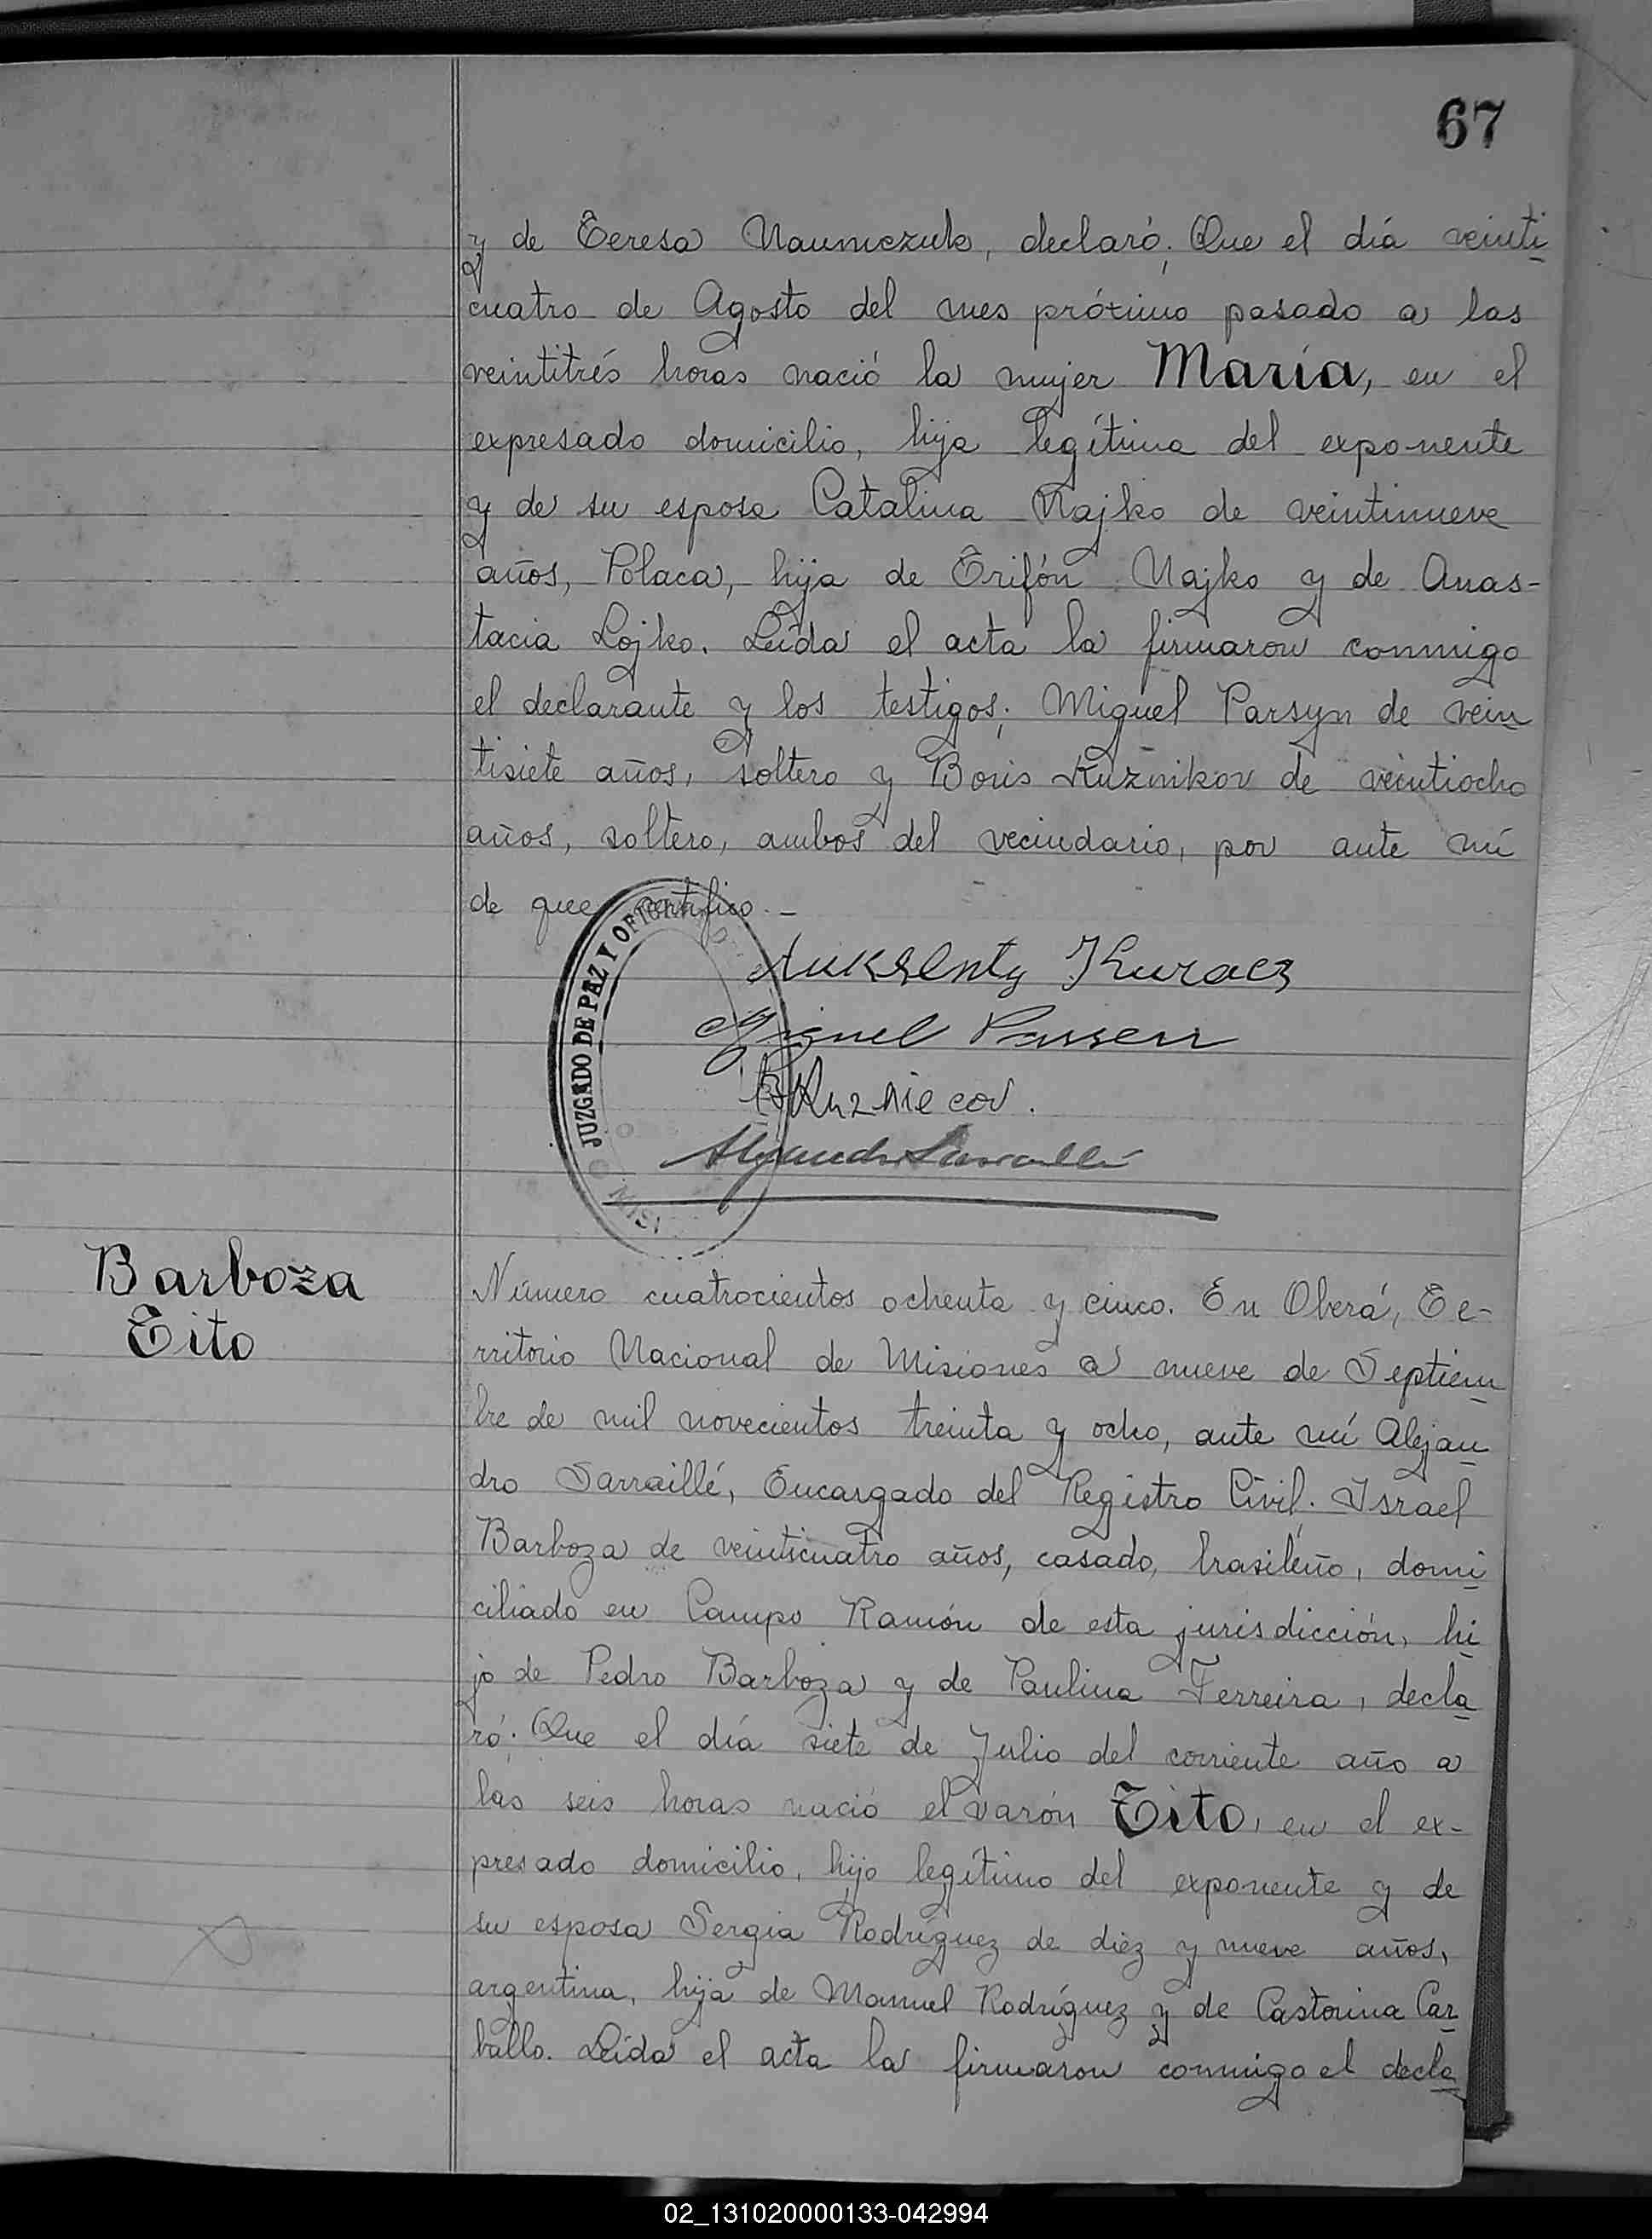 67
y de Teresa Naumczuk, declaró: Que el día veinti
cuatro de Agosto del mes próximo pasado a las
veintitrés horas nació la mujer María, en el
expresado domicilio, hija legítima del exponente
y de su esposa Catalina Najko de veintinueve
años, Polaca, hija de Trifón Najko y de Anas-
tacia Lojko. Leída el acta la firmaron conmigo
el declarante y los testigos: Miguel Parsyn de vein
tisiete años, soltero y Boris Kuznikov de veintiocho
años, soltero, ambos del vecindario, por ante mí
de que certifico.-
JUZGADO DE PAZ Y OFICINA
Auksenty Kuracz
Miguel
BKuzniecov.
Alejandro Sarraillé
Barboza
Tito
Número cuatrocientos ochenta y cinco. En Oberá, Te-
rritorio Nacional de Misiones a nueve de Septiem
bre de mil novecientos treinta y ocho, ante mí Alejan
dro Sarraillé, Encargado del Registro Civil. Israel
Barboza de veinticuatro años, casado, brasileño, domi
ciliado en Campo Ramón de esta jurisdicción, hi
jo de Pedro Barboza y de Paulina Ferreira, decla
ró: Que el día siete de Julio del corriente año a
las seis horas nació el varón Tito, en el ex-
presado domicilio, hijo legítimo del exponente y de
su esposa Sergia Rodríguez de diez y nueve años,
argentina, hija de Manuel Rodríguez y de Castorina Car
ballo. Leída el acta la firmaron conmigo el decla
02_131020000133-042994